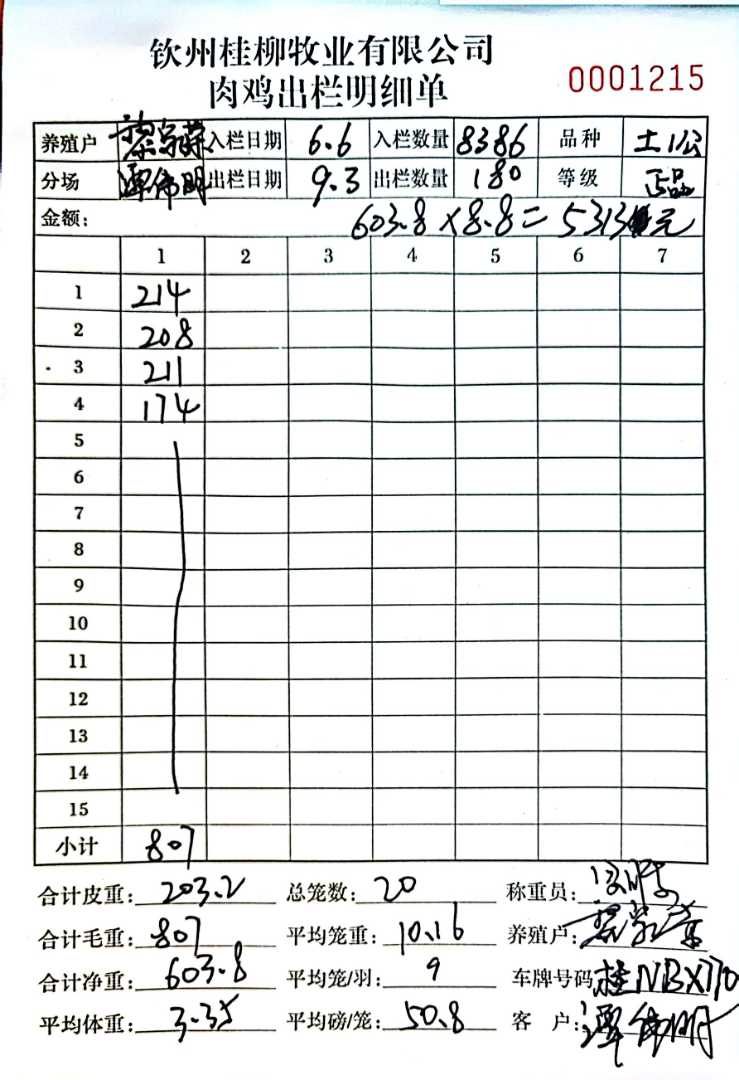 钦州桂柳牧业有限公司
肉鸡出栏明细单
0001215
养殖户 入栏日期 6.6 入栏数量 8386 品种 土1公
分场 谭伟明 出栏日期 9.3 出栏数量 180 等级 正品
金额: 603.8×8.8=5313元
1 2 3 4 5 6 7
1 214
2 208
3 211
4 174
5
6
7
8
9
10
11
12
13
14
15
小计 807
合计皮重: 203.2 总笼数: 20 称重员:
合计毛重: 807 平均笼重: 10.16 养殖户:
合计净重: 603.8 平均笼/羽: 9 车牌号码 桂NBX170
平均体重: 3.35 平均磅/笼: 50.8 客户: 谭伟明